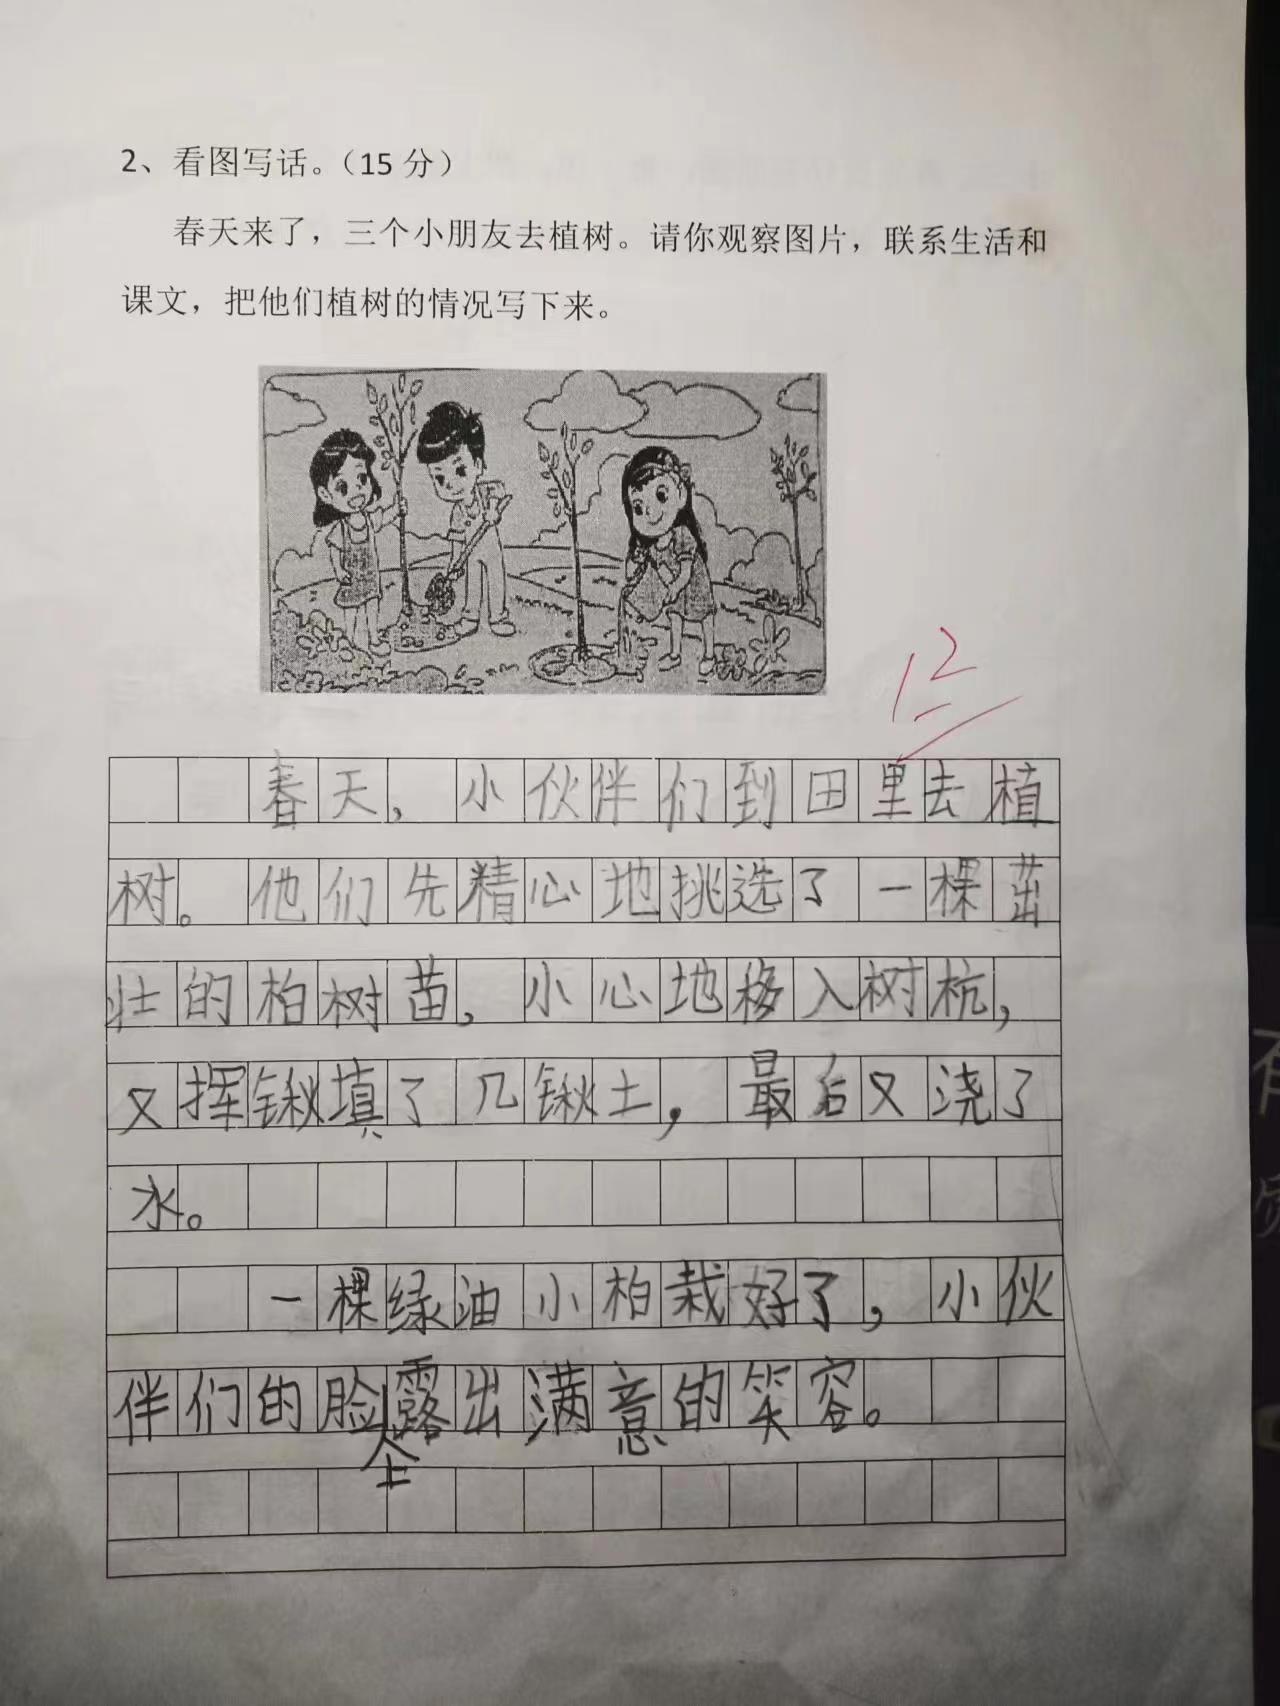 2、看图写话。（15 分）
春天来了，三个小朋友去植树。请你观察图片，联系生活和
课文，把他们植树的情况写下来。
12
春天，小伙伴们到田里去植
树。他们先精心地挑选了一棵茁
壮的柏树苗，小心地移入树杭，
又挥锹填了几锹土，最后又浇了
水。
一棵绿油小柏栽好了，小伙
伴们的脸上露出满意的笑容。